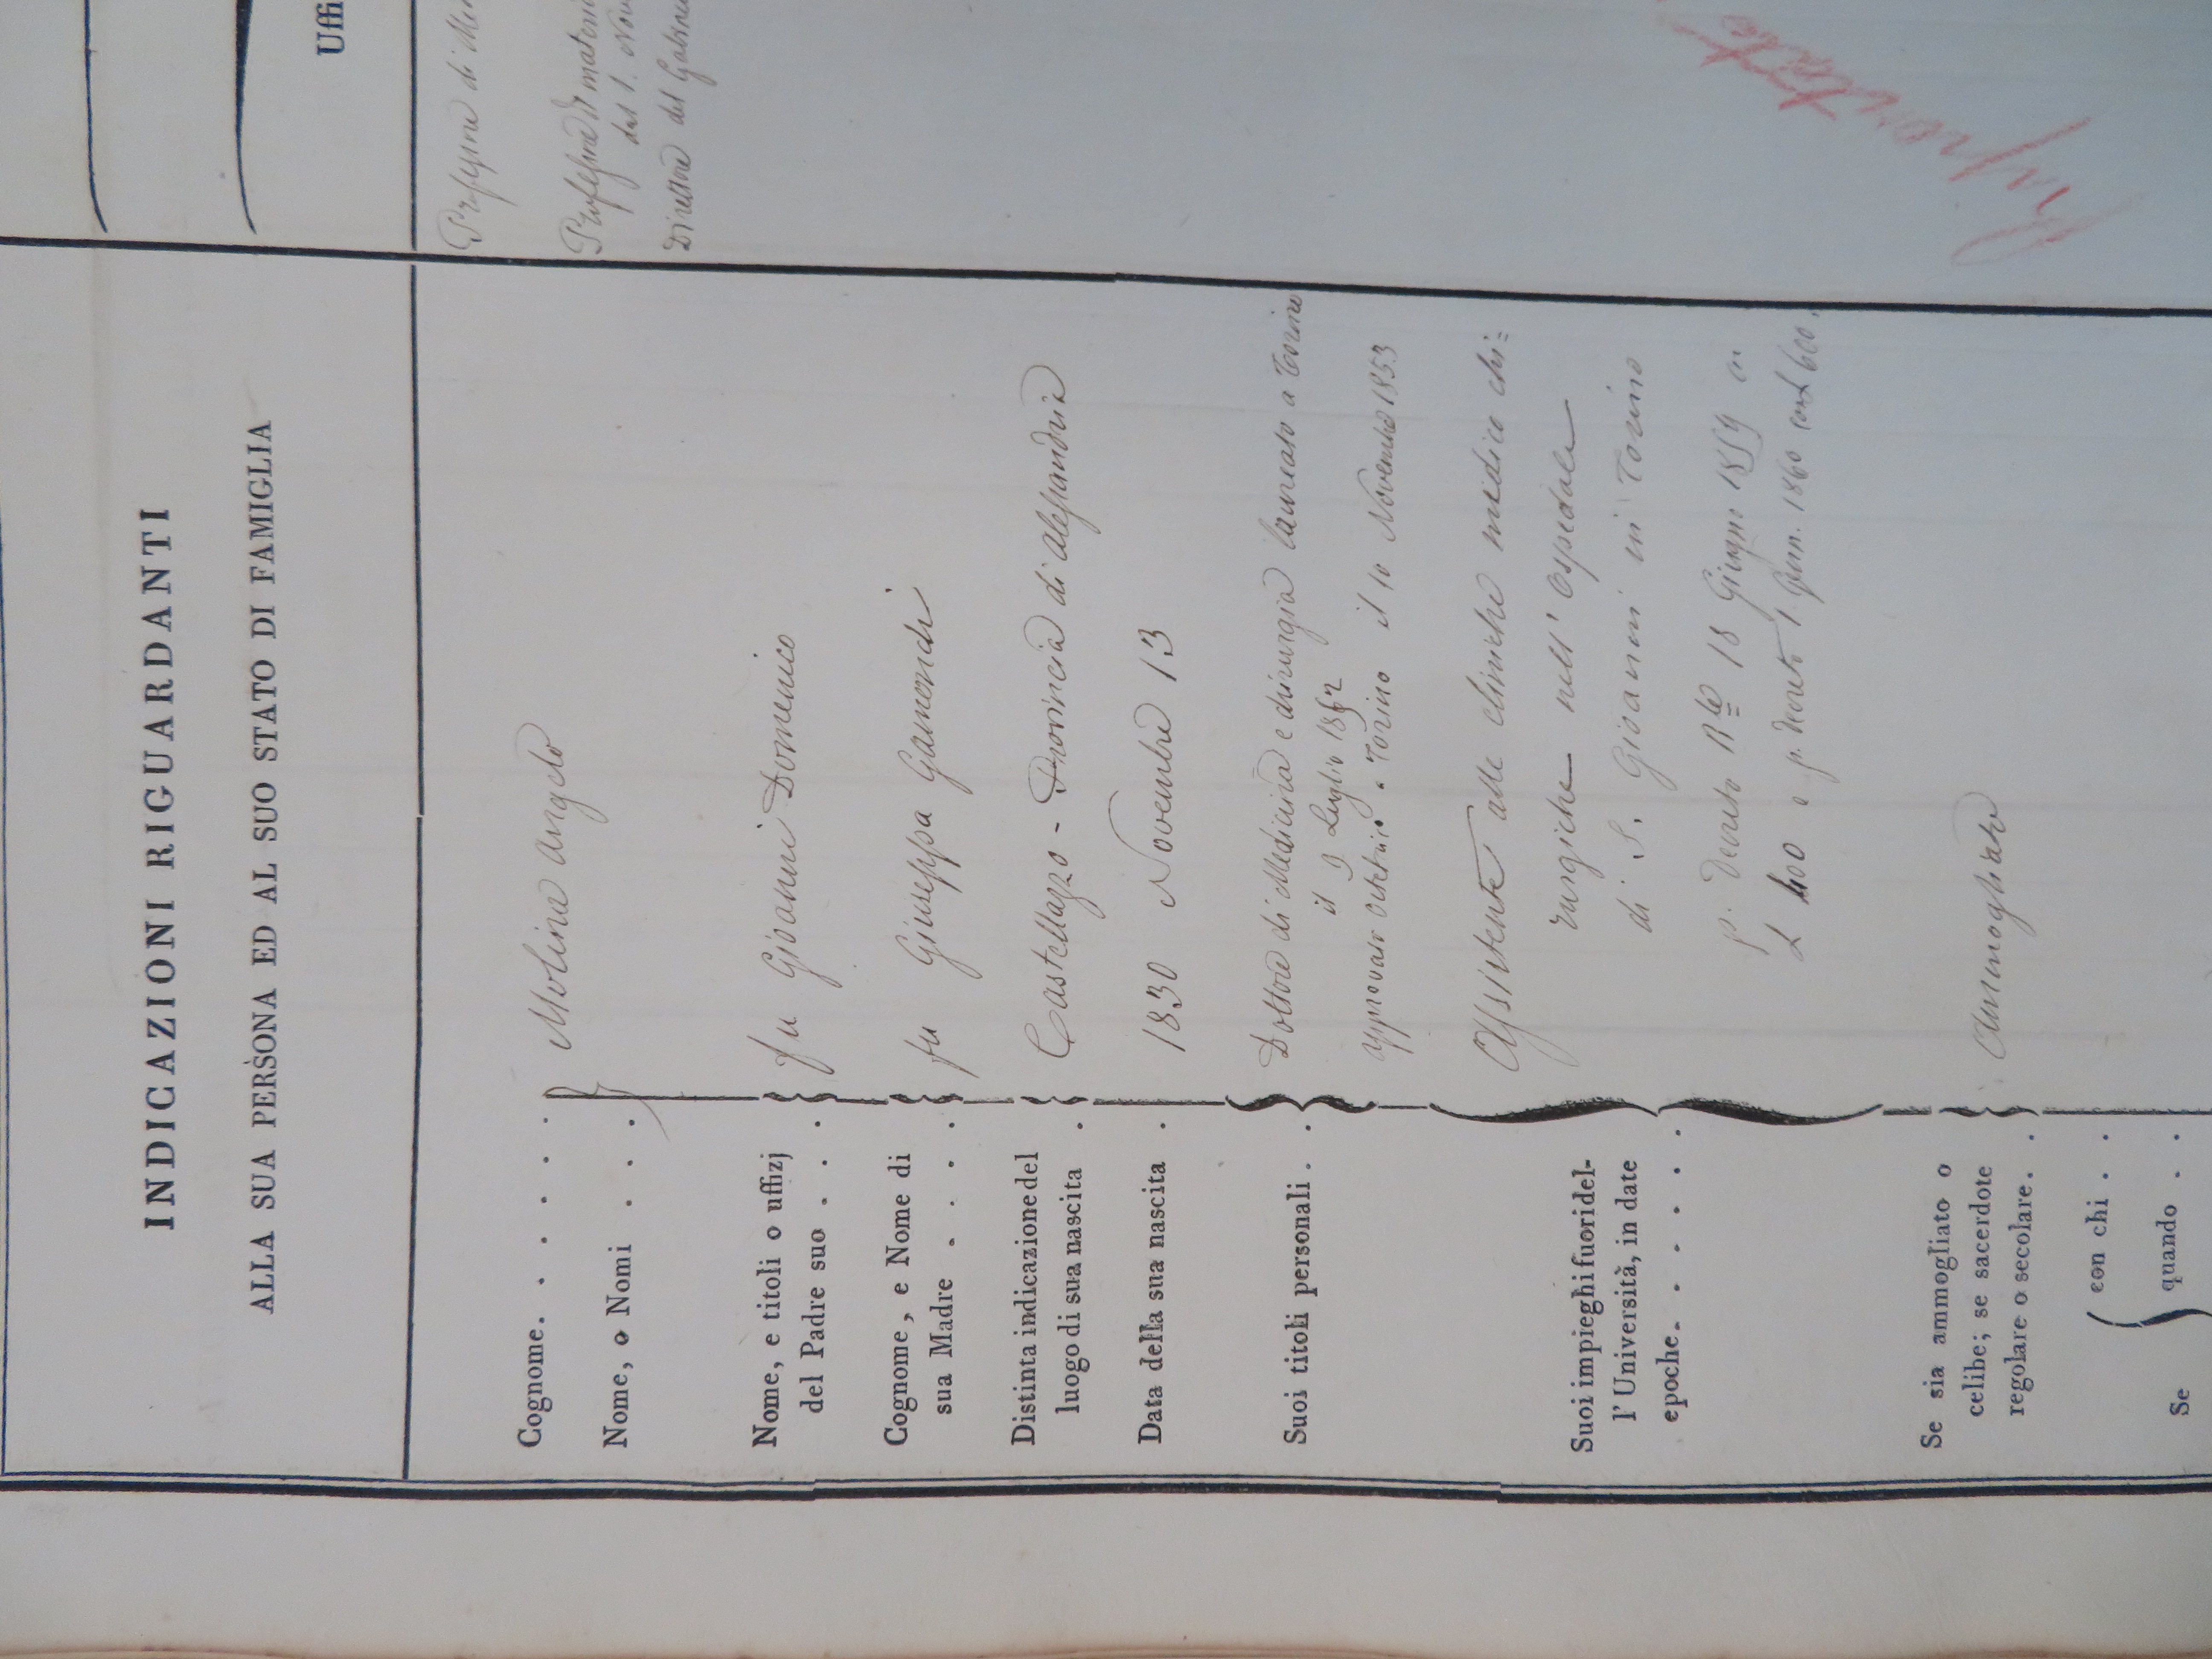 INDICAZIONI RIGUARDANTI
ALLA SUA PERSONA ED AL SUO STATO DI FAMIGLIA
Cognome. . . . . .
Molina Angelo
Nome, o Nomi . . .
Nome, e titoli o uffizj
del Padre suo . . .
fu Giovanni Domenico
Cognome, e Nome di
sua Madre . . . .
fu Giuseppa Gamondi
Distinta indicazione del
luogo di sua nascita .
Castellazzo - Provincia di Alessandria
Data della sua nascita .
1830 Novembre 13
Suoi titoli personali . .
Dottore di Medicina e chirurgia laureato a Torino
il 9 Luglio 1852
approvato Ostetricia a Torino il 10 Novembre 1853
Suoi impieghi fuori del-
l' Università, in date
epoche. . . . . .
Assistente alle cliniche medico chi=
rurgiche nell' Ospedale
di S. Giovanni in Torino
p. Decreto Rle 18 Giugno 1859 con
L 400 e p. decreto 1. Genn. 1860 con L 600.
Se sia ammogliato o
celibe; se sacerdote
regolare o secolare. .
Ammogliato
Se
con chi . .
quando . .
Uffi
Professore di
Professore di materi
dal 1. Nov
Direttore del Gabine